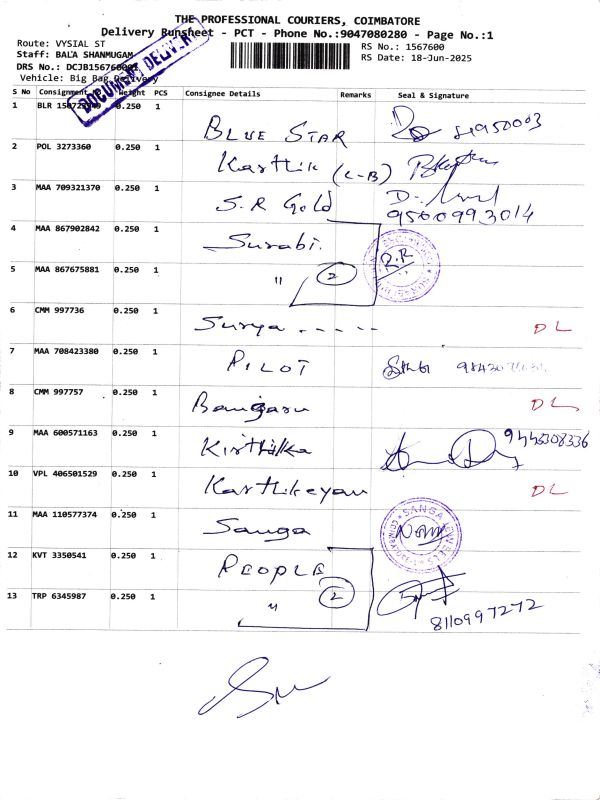 THE PROFESSIONAL COURIERS, COIMBATORE
Delivery Runsheet - PCT - Phone No.:9047080280 - Page No.:1
Route: VYSIAL ST
RS No.: 1567600
Staff: BALA SHANMUGAM
RS Date: 18-Jun-2025
DRS No.: DCJB1567600
Vehicle: Big Bag Delivery
DOCUMENT DELIVERY
S No Consignment Weight PCS Consignee Details Remarks Seal & Signature
1 BLR 0.250 1 BLUE STAR
2 POL 3273360 0.250 1 Karthik (L-B)
3 MAA 709321370 0.250 1 S.R Gold 9500993014
4 MAA 867902842 0.250 1 Surabi.
5 MAA 867675881 0.250 1 " 2 R.R
6 CMM 997736 0.250 1 Surya - - - - - DL
7 MAA 708423380 0.250 1 PILOT
8 CMM 997757 0.250 1 Bangaru DL
9 MAA 600571163 0.250 1 Kirthika 9445308336
10 VPL 406501529 0.250 1 Karthikeyan DL
11 MAA 110577374 0.250 1 Sanga SANGA JEWELLS
12 KVT 3350541 0.250 1 PEOPLE
13 TRP 6345987 0.250 1 " 2 8110997272